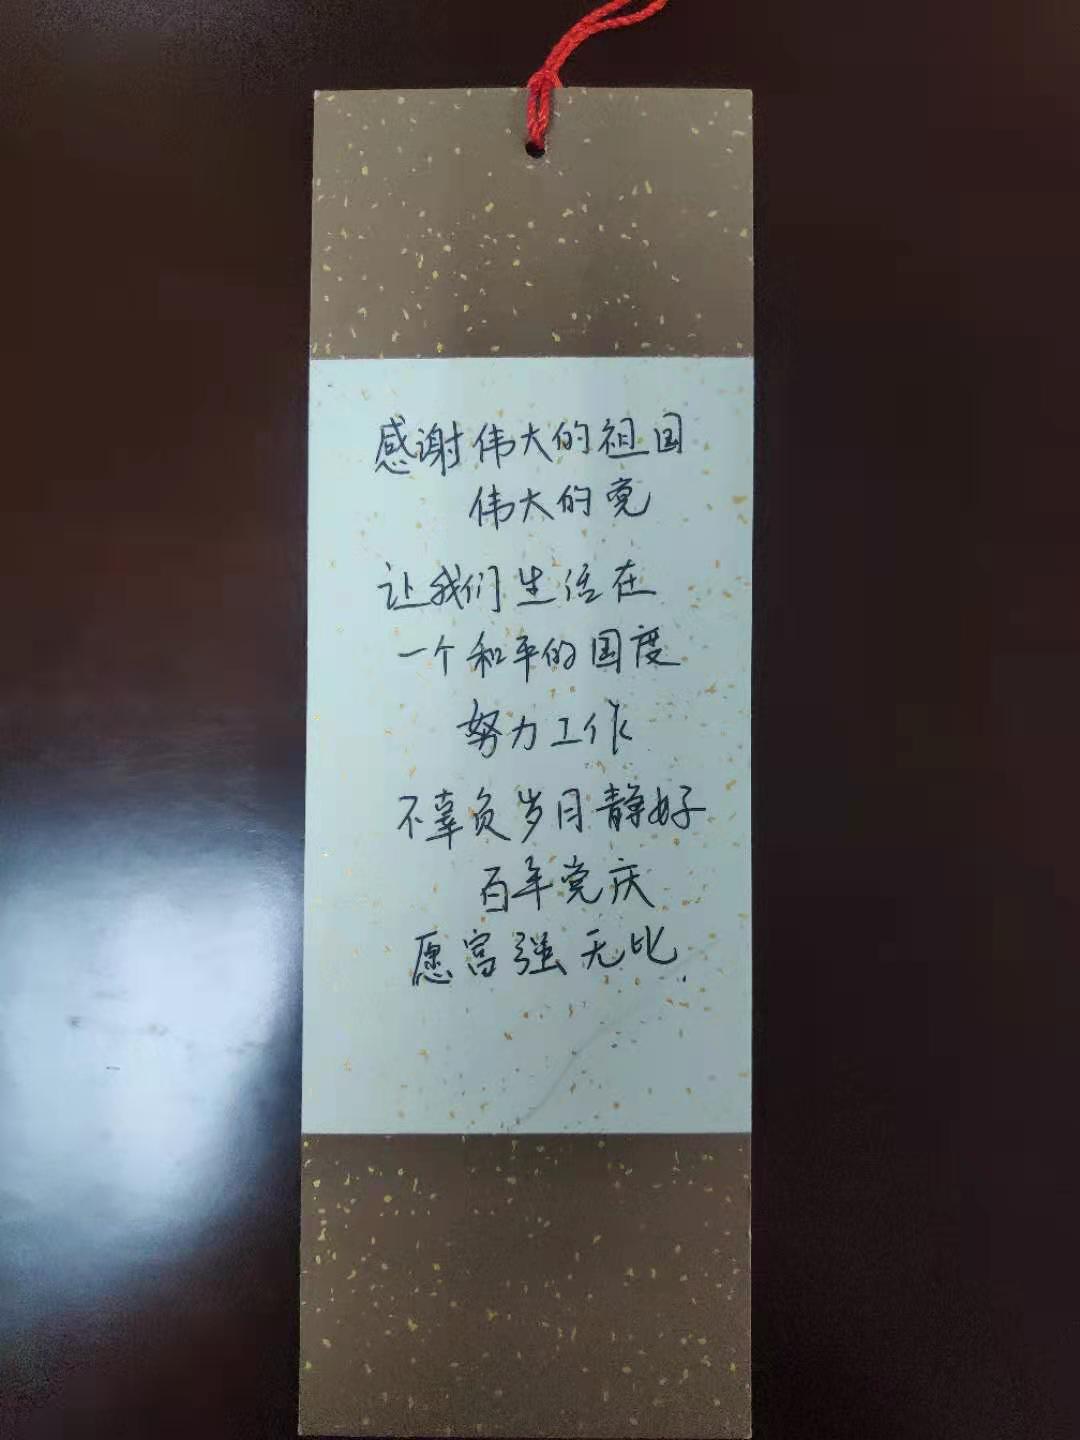 感谢伟大的祖国
伟大的党
让我们生活在
一个和平的国度
努力工作
不辜负岁月静好
百年党庆
愿富强无比